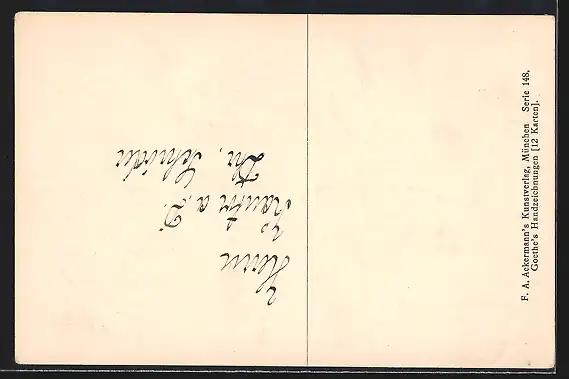 F. A. Ackermann's Kunstverlag, München Serie 148,
Goethe's Handzeichnungen [12 Karten].
Herrn
a. D.
Dr. Schröder